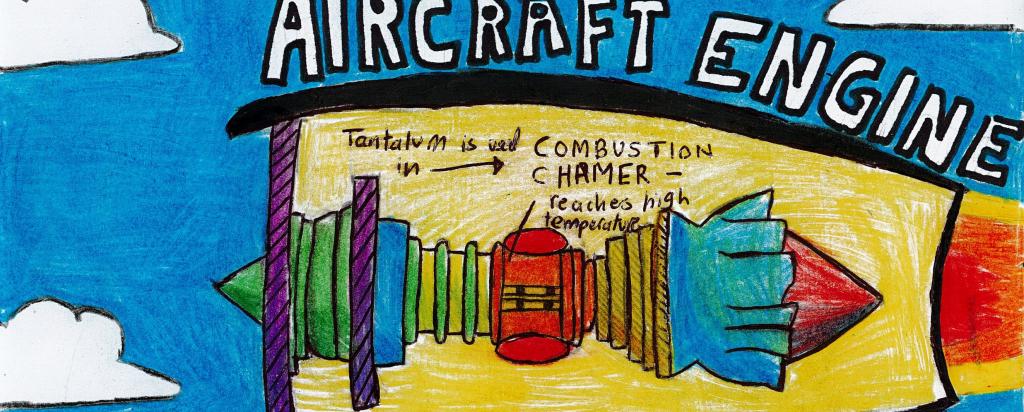 AIRCRAFT ENGINE
Tantalum is used
in → COMBUSTION
CHAMER -
reaches high
temperature